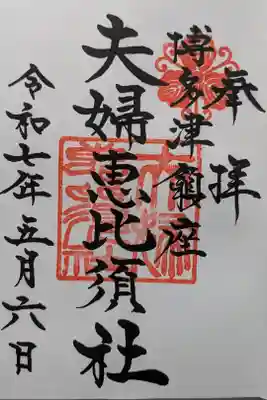 奉拝
博多津鎮座
夫婦恵比須社
令和七年五月六日